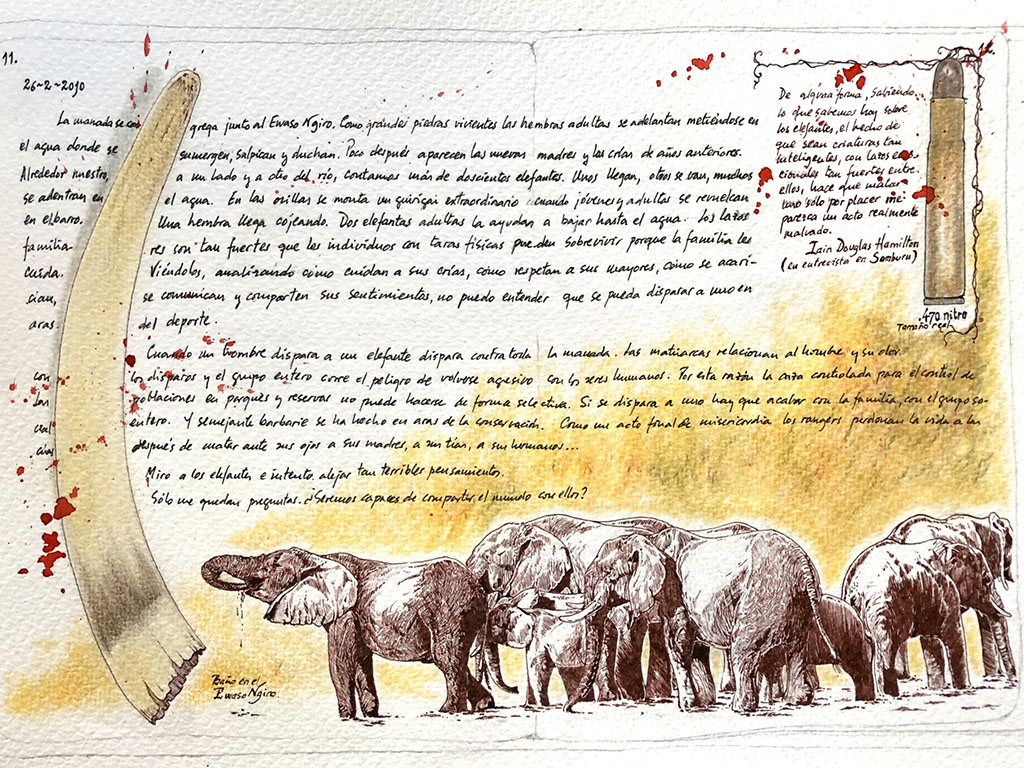 11.
26-2-2010
La manada se con grega junto al Ewaso Ngiro. Como grandes piedras vivientes las hembras adultas se adelantan metiéndose en
el agua donde se sumergen, salpican y duchan. Poco después aparecen las nuevas madres y las crías de años anteriores.
Alrededor nuestro, a un lado y a otro del río, contamos más de doscientos elefantes. Unos llegan, otros se van, muchos
se adentran en el agua. En las orillas se monta un guirigai extraordinario cuando jóvenes y adultas se revuelcan
en el barro. Una hembra llega cojeando. Dos elefantas adultas la ayudan a bajar hasta el agua. Los lazos
familia- res son tan fuertes que los individuos con taras físicas pueden sobrevivir porque la familia les
cuida. Viéndolos, analizando cómo cuidan a sus crías, cómo respetan a sus mayores, cómo se acari-
cian, se comunican y comparten sus sentimientos, no puedo entender que se pueda disparar a uno en
aras del deporte.
Cuando un hombre dispara a un elefante dispara contra toda la manada. Las matriarcas relacionan al hombre y su olor
con los disparos y el grupo entero corre el peligro de volverse agresivo con los seres humanos. Por esta razón la caza controlada para el control de
las poblaciones en parques y reservas no puede hacerse de forma selectiva. Si se dispara a uno hay que acabar con la familia, con el grupo
entero. Y semejante barbarie se ha hecho en aras de la conservación. Como un acto final de misericordia los rangers perdonan la vida a las
crías después de matar ante sus ojos a sus madres, a sus tías, a sus hermanos...
Miro a los elefantes e intento alejar tan terribles pensamientos.
Sólo me quedan preguntas. ¿Seremos capaces de compartir el mundo con ellos?
Baño en el
Ewaso Ngiro.
12.
De alguna forma, sabiendo
lo que sabemos hoy sobre
los elefantes, el hecho de
que sean criaturas tan
inteligentes, con lazos emo-
cionales tan fuertes entre
ellos, hace que matar
uno sólo por placer me
parezca un acto realmente
malvado.
Iain Douglas Hamilton
(en entrevista en Samburu)
.470 nitro
Tamaño real